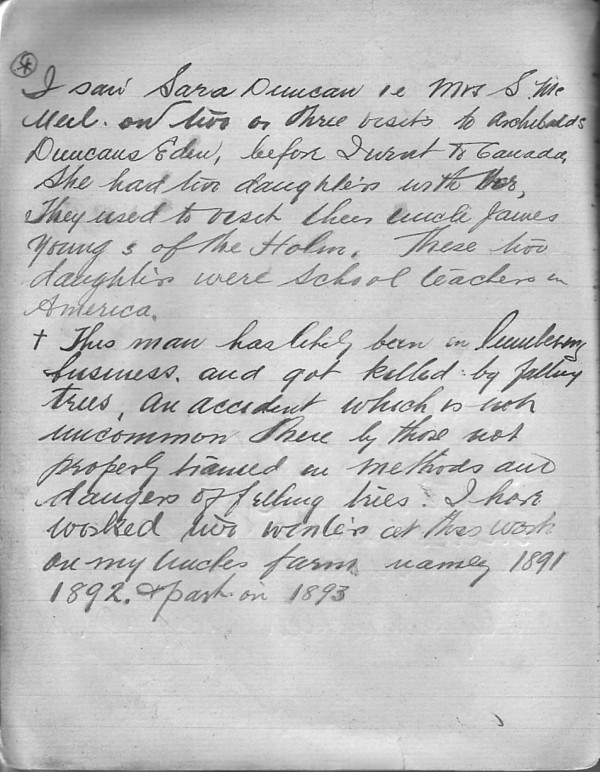 *
I saw Sara Duncan ie Mrs S. Mc
Neil. on two or three visits to Archibald
Duncans Eden, before I went to Canada,
She had two daughters with her,
They used to visit their uncle James
Young s of the Holm. These two
daughters were school teachers in
America.
+ This man has likely been in lumbering
business. and got killed by falling
trees, an accident which is not
uncommon there by those not
properly trained in methods and
dangers of felling trees. I have
worked two winters at this work
on my Uncles farm namely 1891
1892. & part on 1893